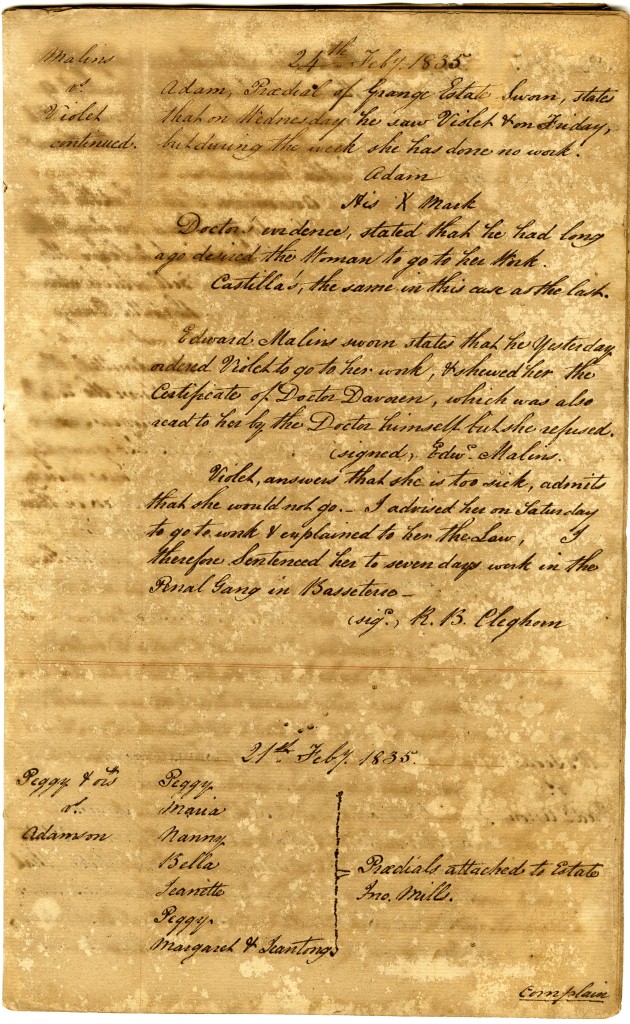 24th Feby. 1835
Malins
vs.
Violet
continued.
Adam, Prædial of Grange Estate Sworn, states
that on Wednesday he saw Violet & on Friday,
but during the week she has done no work.
Adam
His X Mark
Doctor's evidence, stated that he had long
ago desired the Woman to go to her Work.
Castilla's, the same in this case as the last.
Edward Malins sworn states that he Yesterday
ordered Violet to go to her work, & shewed her the
Certificate of Doctor Davoren, which was also
read to her by the Doctor himself but she refused.
(signed, Edwd. Malins.
Violet, answers that she is too sick, admits
that she would not go. – I advised her on Saturday
to go to work & explained to her the Law, I
therefore Sentenced her to seven days work in the
Penal Gang in Basseterre –
(sigd., R. B. Cleghorn
21st. Feby. 1835.
Peggy & ors
vs.
Adamson
Peggy
Maria
Nanny
Bella
Jeanette
Peggy
Margaret & Jeantong
Prædials attached to Estate
Jno. Mills.
complain